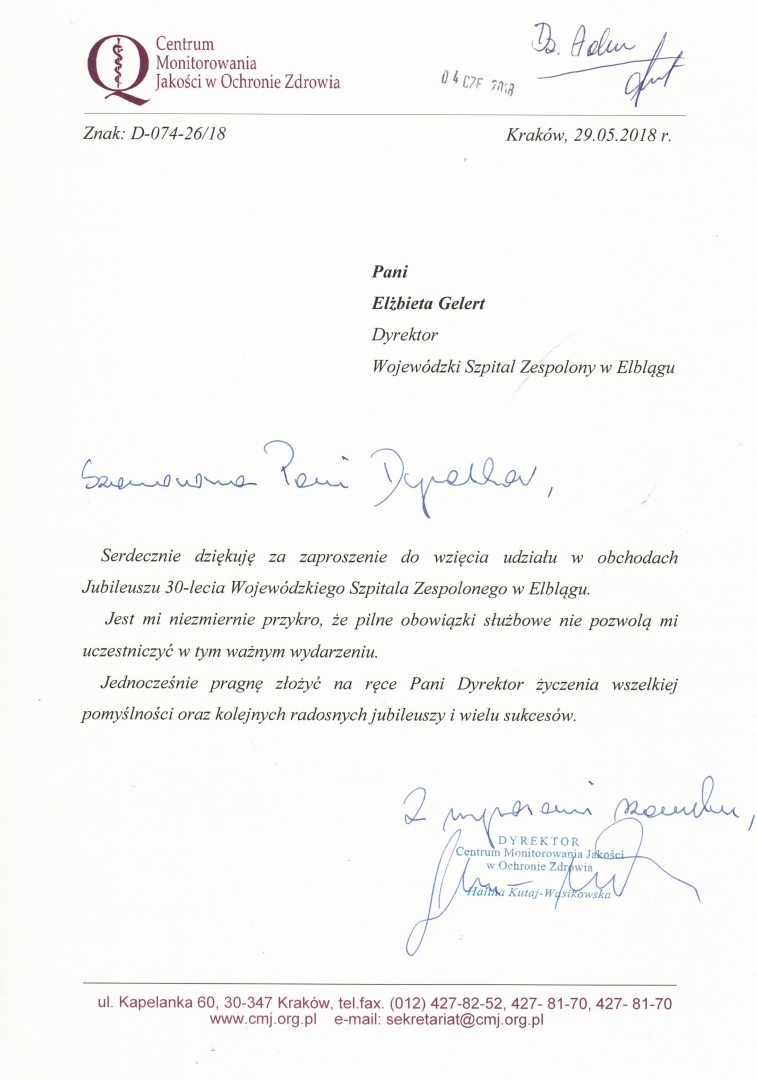 Centrum
Monitorowania
Jakości w Ochronie Zdrowia
04 CZE 2018
Dz. Adm
Znak: D-074-26/18
Kraków, 29.05.2018 r.
Pani
Elżbieta Gelert
Dyrektor
Wojewódzki Szpital Zespolony w Elblągu
Szanowna Pani Dyrektor,
Serdecznie dziękuję za zaproszenie do wzięcia udziału w obchodach
Jubileuszu 30-lecia Wojewódzkiego Szpitala Zespolonego w Elblągu.
Jest mi niezmiernie przykro, że pilne obowiązki służbowe nie pozwolą mi
uczestniczyć w tym ważnym wydarzeniu.
Jednocześnie pragnę złożyć na ręce Pani Dyrektor życzenia wszelkiej
pomyślności oraz kolejnych radosnych jubileuszy i wielu sukcesów.
Z wyrazami szacunku,
DYREKTOR
Centrum Monitorowania Jakości
w Ochronie Zdrowia
Halina Kutaj-Wąsikowska
ul. Kapelanka 60, 30-347 Kraków, tel.fax. (012) 427-82-52, 427- 81-70, 427- 81-70
www.cmj.org.pl e-mail: sekretariat@cmj.org.pl